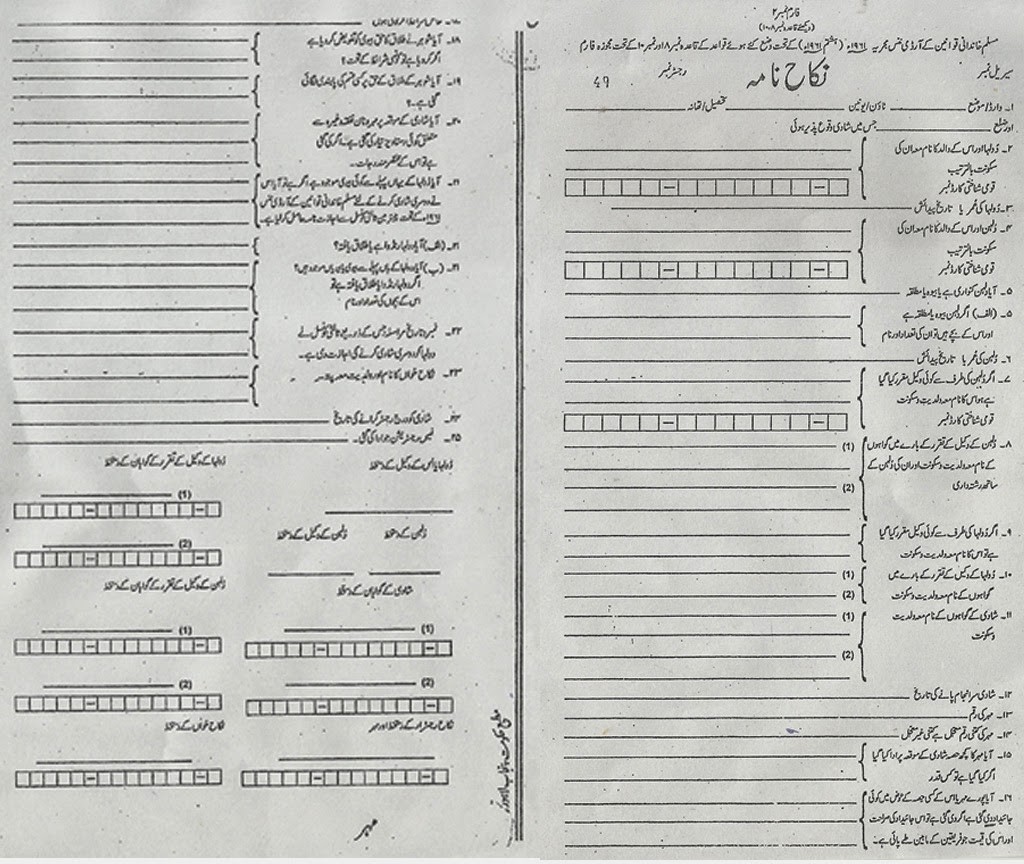 فارم نمبر ۲
(دیکھئے قاعدہ نمبر ۸-۱۰)
مسلم خاندانی قوانین کے آرڈی ننس مجریہ ۱۹۶۱ء (ہشتم ۱۹۶۱ء) کے تحت وضع کئے ہوئے قواعد کے قاعدہ نمبر ۸ اور نمبر ۱۰ کے تحت مجوزہ فارم
سیریل نمبر نکاح نامہ رجسٹر نمبر 49
۱۔ وارڈ/موضع ٹاؤن/یونین تحصیل/تھانہ
اور ضلع جس میں شادی وقوع پذیر ہوئی
۲۔ دُولہا اور اس کے والد کا نام معہ ان کی
سکونت بالترتیب
قومی شناختی کارڈ نمبر
۳۔ دُولہا کی عمر یا تاریخ پیدائش
۴۔ دُلہن اور اس کے والد کا نام معہ ان کی
سکونت بالترتیب
قومی شناختی کارڈ نمبر
۵۔ آیا دُلہن کنواری ہے یا بیوہ یا مطلقہ
۵۔ (الف) اگر دُلہن بیوہ یا مطلقہ ہے
اور اس کے بچے ہیں تو ان کی تعداد اور نام
۶۔ دُلہن کی عمر یا تاریخ پیدائش
۷۔ اگر دُلہن کی طرف سے کوئی وکیل مقرر کیا گیا
ہے تو اس کا نام معہ ولدیت و سکونت
قومی شناختی کارڈ نمبر
۸۔ دُلہن کے وکیل کے تقرر کے بارے میں گواہوں (1)
کے نام معہ ولدیت و سکونت اور ان کی دُلہن کے
ساتھ رشتہ داری (2)
۹۔ اگر دُولہا کی طرف سے کوئی وکیل مقرر کیا گیا
ہے تو اس کا نام معہ ولدیت و سکونت
۱۰۔ دُولہا کے وکیل کے تقرر کے بارے میں (1)
گواہوں کے نام معہ ولدیت و سکونت (2)
۱۱۔ شادی کے گواہوں کے نام معہ ولدیت (1)
و سکونت
(2)
۱۲۔ شادی سرانجام پانے کی تاریخ
۱۳۔ مہر کی رقم
۱۴۔ مہر کی کتنی رقم معجل ہے کتنی غیر معجل
۱۵۔ آیا مہر کا کچھ حصہ شادی کے موقعہ پر ادا کیا گیا
اگر کیا گیا ہے تو کس قدر
۱۶۔ آیا پورے مہر یا اس کے کسی حصہ کے عوض میں کوئی
جائیداد دی گئی ہے اگر دی گئی ہے تو اس جائیداد کی صراحت
اور اس کی قیمت جو فریقین کے مابین طے پائی ہے۔
۱۸۔ آیا شوہر نے طلاق کا حق بیوی کو تفویض کر دیا ہے
اگر کر دیا ہے تو کونسی شرائط کے تحت؟
۱۹۔ آیا شوہر کے طلاق کے حق پر کسی قسم کی پابندی لگائی
گئی ہے۔؟
۲۰۔ آیا شادی کے موقعہ پر مہر و نان نفقہ وغیرہ سے
متعلق کوئی دستاویز تیار کی گئی ہے۔ اگر کی گئی
ہے تو اس کے مختصر مندرجات۔
۲۱۔ آیا دُولہا کے یہاں پہلے سے کوئی بیوی موجود ہے اگر ہے تو آیا اس
نے دوسری شادی کرنے کے لئے مسلم خاندانی قوانین کے آرڈی ننس
۱۹۶۱ء کے تحت ثالثی کونسل سے اجازت نامہ حاصل کر لیا ہے۔
۲۱۔ (الف) آیا دولہا رنڈوا ہے یا طلاق یافتہ؟
۲۱۔ (ب) آیا دولہا کے ہاں پہلے سے بیوی یا بیویاں موجود ہیں؟
اگر دُولہا رنڈوا یا طلاق یافتہ ہے تو
اس کے بچوں کی تعداد اور نام
۲۲۔ نمبر و تاریخ مراسلہ جس کے ذریعہ ثالثی کونسل نے
دولہا کو دوسری شادی کرنے کی اجازت دی ہے۔
۲۳۔ نکاح خواں کا نام اور ولدیت معہ پتہ
۲۴۔ شادی کو درج رجسٹر کرانے کی تاریخ
۲۵۔ فیس رجسٹریشن جو ادا کی گئی۔
دُولہا یا اس کے وکیل کے دستخط دُولہا کے وکیل کے تقرر کے گواہان کے دستخط
(1)
(2)
دُلہن کے دستخط دُلہن کے وکیل کے دستخط
شادی کے گواہان کے دستخط دُلہن کے وکیل کے تقرر کے گواہان کے دستخط
(1) (1)
(2) (2)
نکاح رجسٹرار کے دستخط اور مہر نکاح خواں کے دستخط
مہر
مطبع حکومت پنجاب لاہور